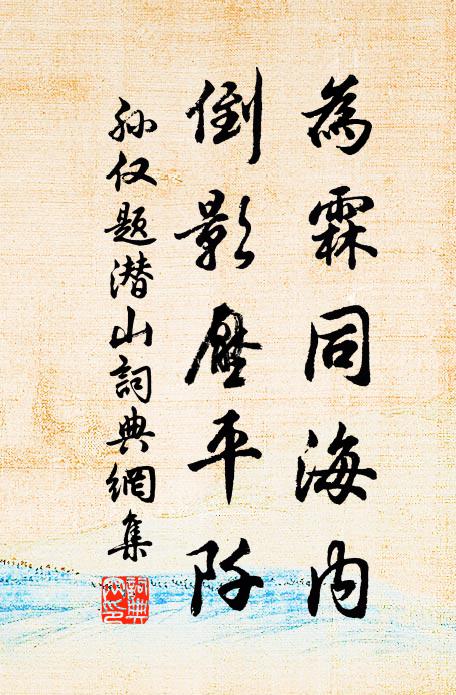 為霖同海内
倒影壓平阡
孙仅题潜山詞典網集